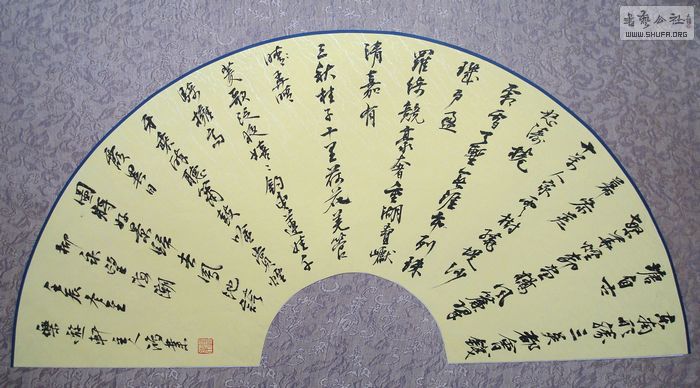 東南形勝三吳都會錢
塘自古
繁華烟柳畫橋風簾翠
幕參差
十萬人家雲樹繞堤沙
怒濤捲
霜雪天塹無涯市列珠
璣戶盈
羅綺競豪奢重湖疊巘
清嘉有
三秋桂子十里荷花羌管
弄晴
菱歌泛夜嬉〻釣叟蓮娃千
騎擁高
牙乘醉聽簫鼓吟賞煙
霞異日
圖將好景歸去鳳池誇
柳永望海潮
壬辰冬
軒主人鴻業
書法公社
WWW.SHUFA.ORG